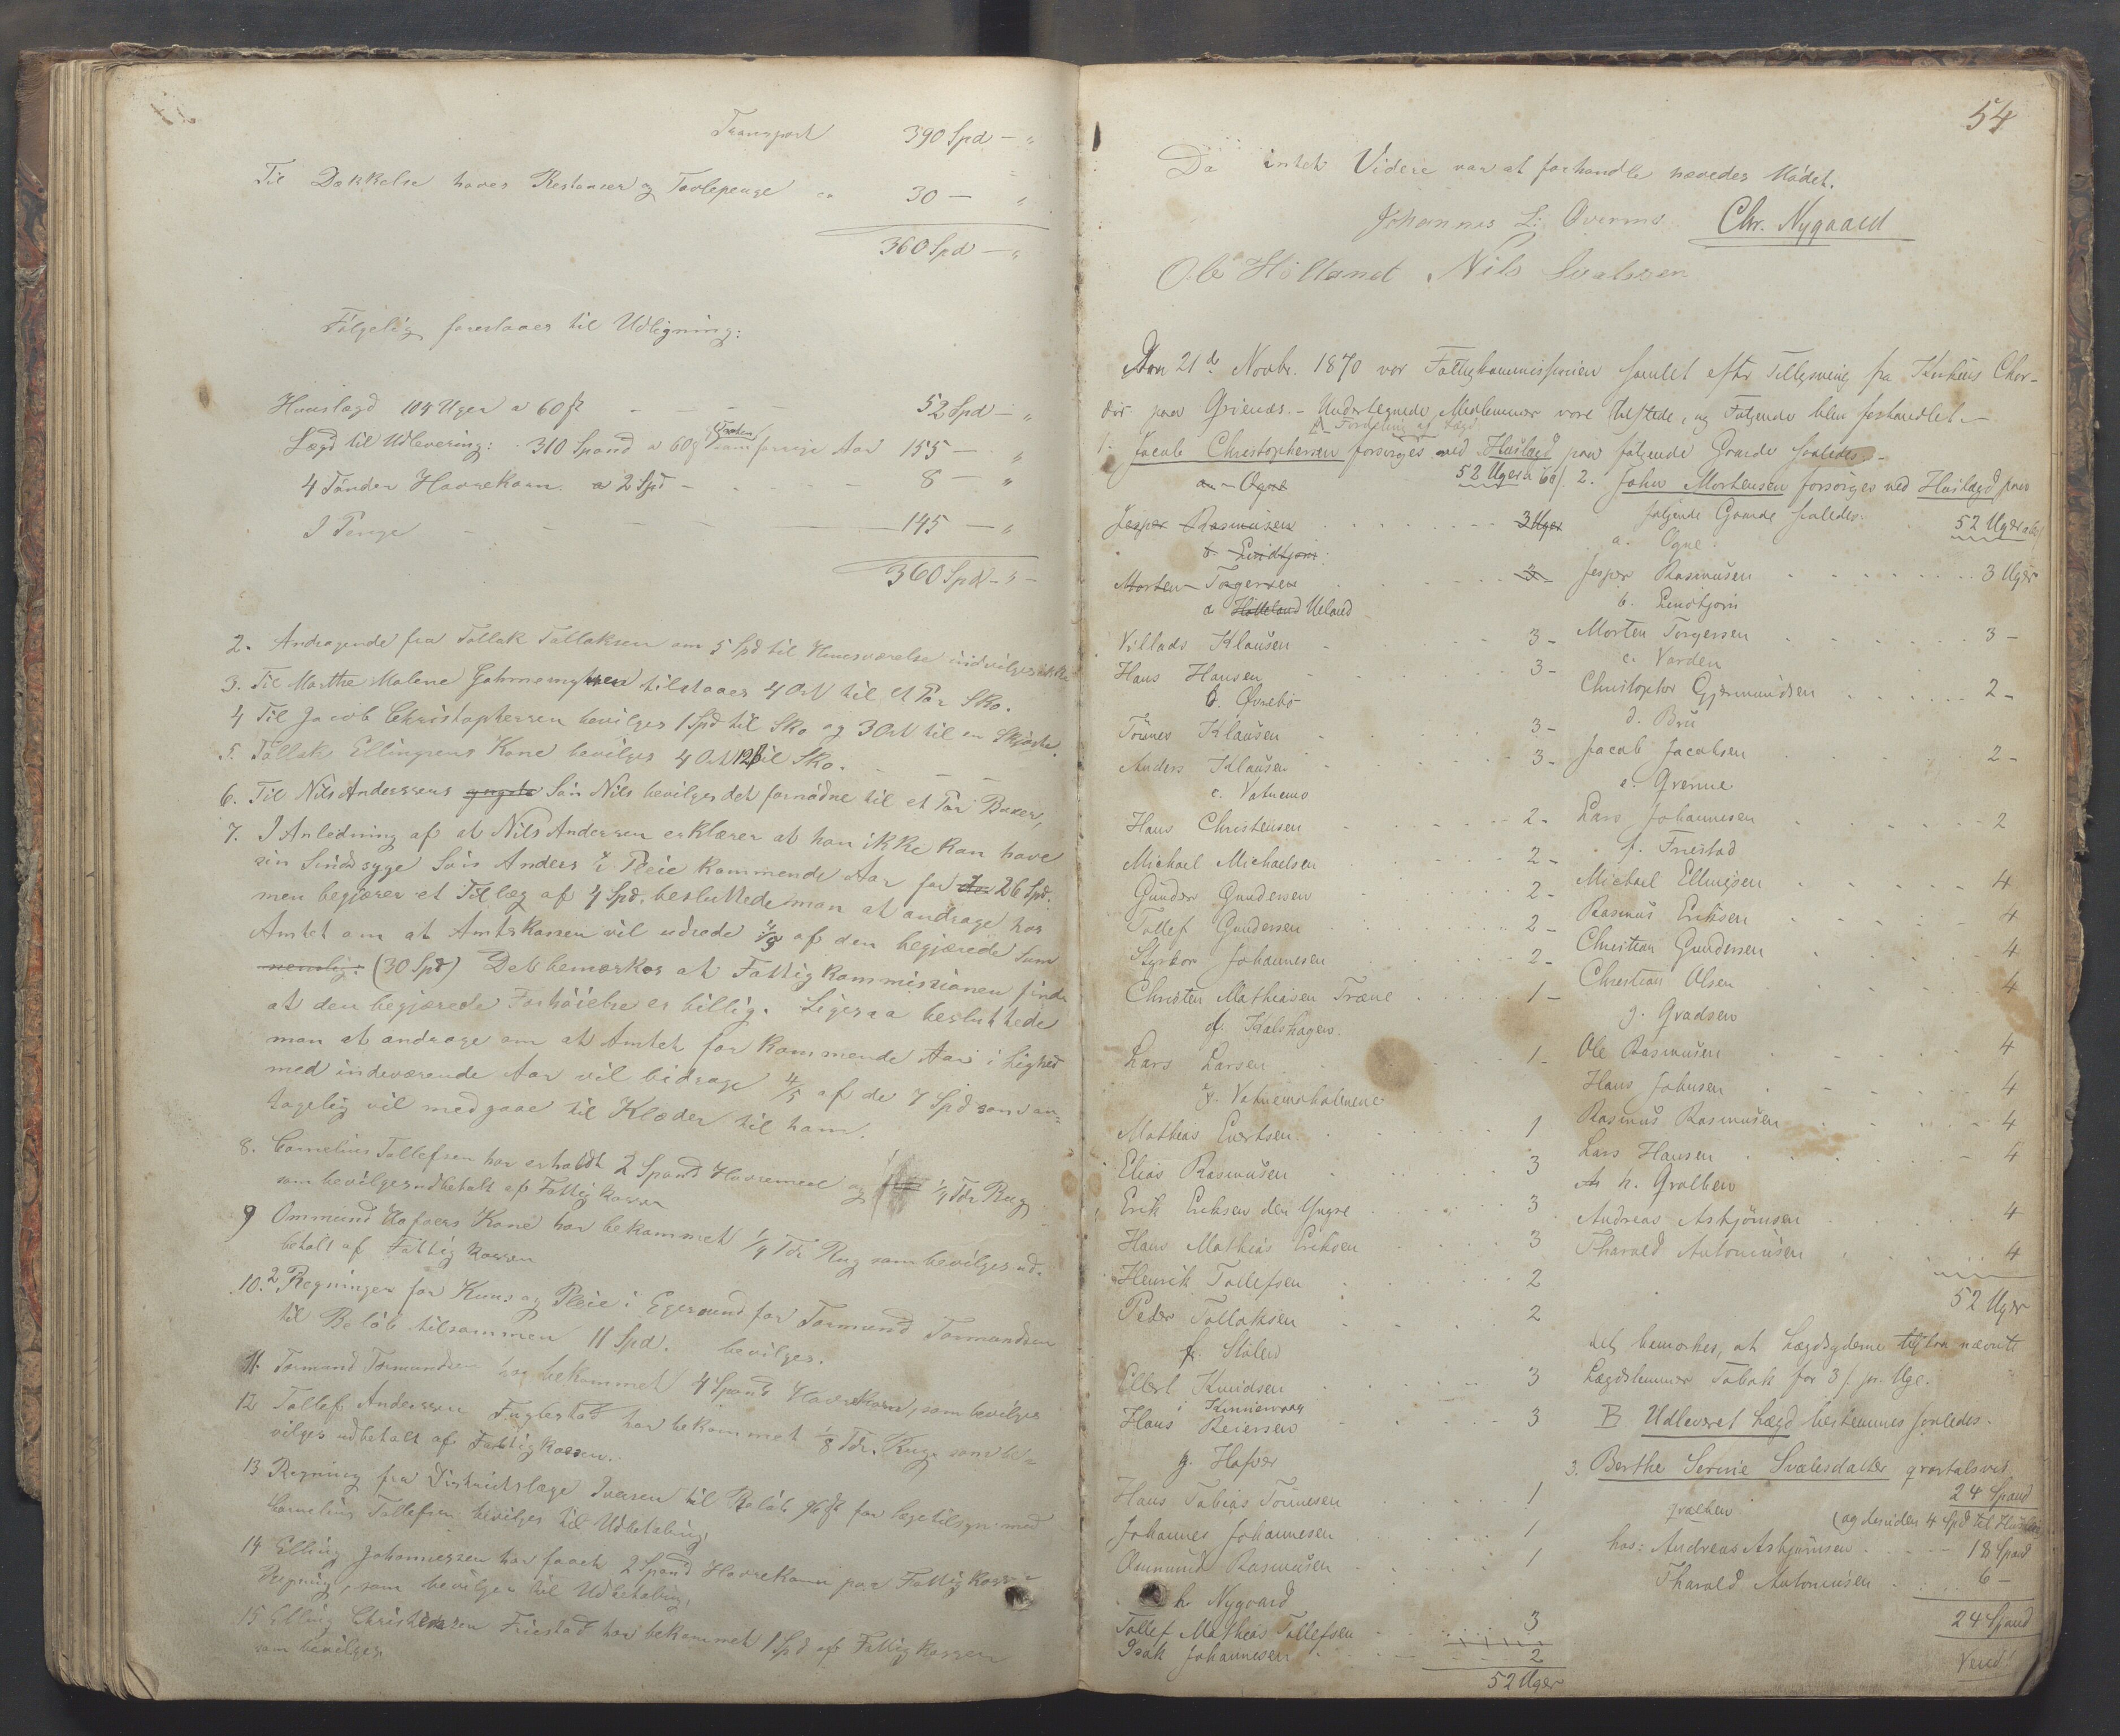 Transport 390 Spd — "
Til Dækkelse haves Restancer og Tavlepenge ca 30 — "
360 Spd — "
Følgelig foreslaaes til Udligning:
Huuslægd 104 Uger a 60 ß - - - 52 Spd — "
Lægd til Udlevering: 310 Spand a 60 ß som forrige Aar 155 — "
4 Tønder Havrekorn a 2 Spd - - - 8 — "
I Penge - - - 145 — "
360 Spd - " -
2. Andragende fra Tollak Tollaksen om 5 Spd til Huusværelse indvilges ikke
3. Til Marthe Malene tilstaaes 4 Ort til et Par Sko.
4 Til Jacob Christophersen bevilges 1 Spd til Sko og 3 Ort til en Skjorte.
5. Tollak Ellingsens Kone bevilges 4 Ort 12 ß til Sko.
6. Til Nils Anderssens yngste Søn Nils bevilges det fornødne til et Par Buxer,
7. I Anledning af at Nils Andersen erklærer at han ikke kan have
sin Sindssyge Søn Anders i Pleie kommende Aar for 26 Spd.
men begjærer et Tillæg af 4 Spd. besluttede man at andrage hos
Amtet om at Amtskassen vil udrede 4/5 af den begjærede Sum
nemlig: (30 Spd) Det bemærkes at Fattigkommissionen finder
at den begjærede Forhøielse er billig. Ligesaa besluttede
man at andrage om at Amtet for kommende Aar i Lighed
med indeværende Aar vil bidrage 4/5 af de 7 Spd som an=
tagelig vil medgaae til Klæder til ham.
8. Cornelius Tollefsen har erholdt 2 Spand Havremeel og 1/4 Tdr Rug
som bevilges udbetalt af Fattigkassen
9 Ommund Hafsøers Kone har bekommet 1/4 Tdr Rug som bevilges ud-
betalt af Fattigkassen
10. 2 Regninger for Kuur og Pleie i Egersund for Tormund Tormundsen
til Beløb tilsammen 11 Spd. bevilges.
11. Tormund Tormundsen har bekommet 4 Spand Havrekorn, som bevilges
12 Tollef Anderssen Fuglestad har bekommet 1/8 Tdr. Rug som be=
vilges udbetalt af Fattigkassen.
13 Regning fra Distriktslæge Iversen til Beløb 96 ß for Lægetilsyn med
Cornelius Tollefsen bevilges til Udbetaling.
14 Elling Johannessen har faaet 2 Spand Havrekorn paa Fattigkassens
Regning, som bevilges til Udbetaling.
15 Elling Christensen Friestad har bekommet 1 Spd af Fattigkassen
som bevilges
54
Da intet Videre var at forhandle hævedes Mødet.
Johannes L. Chr. Nygaard
Ole Hølland Nils
Den 21de Novbr. 1870 var Fattigkommissionen samlet efter Tillysning fra Kirkens Chor-
dør paa Grøends. - Undertegnede Medlemmer vare tilstede, og Følgende blev forhandlet. -
A Fordeling af Lægd
1. Jacob Christophersen forsørges ved Huslægd paa følgende Gaarde saaledes. -
a - Ogne 52 Uger a 60 ß
Jesper Rasmussen 3 Uger
b. Lindtjørn
Morten Torgersen 3 -
a Hølleland Ueland
Villads Klausen 3 -
Hans Hansen 3 -
b. Øvrebø
Tønnes Klausen 3 -
Anders Klausen 3 -
c. Vatnemo
Hans Christensen 2 -
Michael Michaelsen 2 -
Gunder Gundersen 2 -
Tollef Gundersen 2 -
Styrkor Johannesen 2 -
Christen Mathiasen Træne 1 -
d. Kalshagen.
Lars Larsen 1 -
e. Vatnemoholmene
Mathias Evertsen 1
Elias Rasmussen 3
Erik Eriksen den Yngre 3
Hans Mathias Eriksen 3
Henrik Tollefsen 2
Peder Tollaksen 2
f. Stølen
Ellert Knudsen 3
i Kinnervaag
Hans Reiersen 3
g. Hafsø
Hans Tobias Tønnesen 1
Johannes Johannesen 1
Ommund Rasmussen 1
h Nygaard
Tollef Mathias Tollefsen 3
Isak Johannesen 2
52 Uger
2. John Mortensen forsørges ved Huslægd paa
følgende Gaarde saaledes: 52 Uger a 60 ß
a. Ogne
Jesper Rasmussen 3 Uger
b. Lindtjørn
Morten Torgersen 3 -
c. Varden
Christopher Gjermundsen 2 -
d. Bru
Jacob Jacobsen 2 -
e. Grenne
Lars Johannesen 2
f. Friestad
Michael Ellingsen 4
Rasmus Eriksen 4
Christian Gundersen 4
Christian Olsen 4
g. Gradsen
Ole Rasmussen 4
Hans Johnsen 4
Rasmus Rasmussen 4
Lars Hansen 4
h. Qvalben
Andreas Asbjørnsen 4
Tharald Antoniusen 4
52 Uger
det bemærkes, at Lægdsyderne tilstaa nævnte
Lægdslemmer Tobak for 3 ß pr. Uge.
B Udleveret Lægd bestemmes saaledes.
3. Berthe Serine Svalesdatter qvartalsvis
24 Spand
Qvalben (og desuden 4 Spd til Huusleie
hos: Andreas Asbjørnsen 18 Spand
Tharald Antoniusen 6 -
24 Spand
Vend!